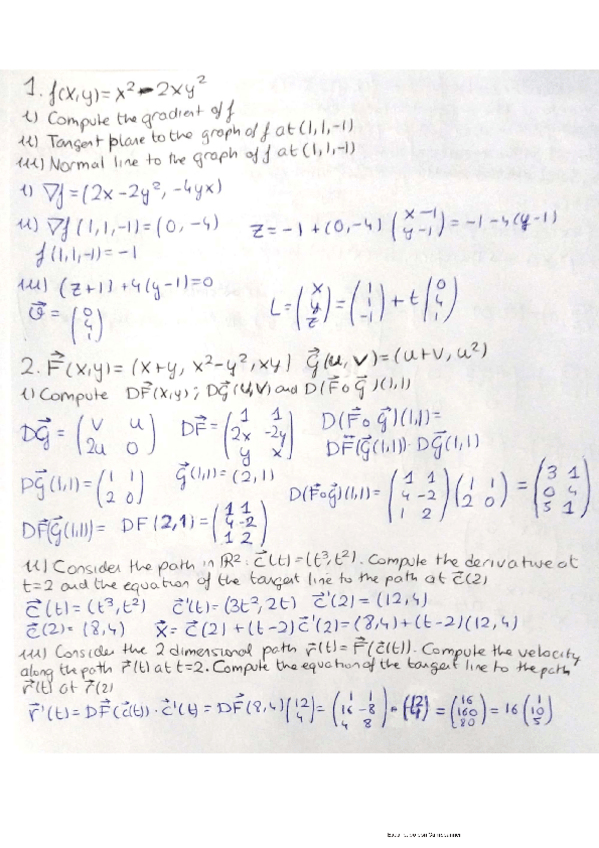 1. f(x,y)=x²-2xy²
i) Compute the gradient of f
ii) Tangent plane to the graph of f at (1,1,-1)
iii) Normal line to the graph of f at (1,1,-1)
i) ∇f=(2x-2y², -4yx)
ii) ∇f(1,1,-1)=(0, -4) z=-1+(0,-4)(x-1 y-1)=-1-4(y-1)
f(1,1,-1)=-1
iii) (z+1)+4(y-1)=0
v⃗=(0 4 1) L=(x y z)=(1 1 -1)+t(0 4 1)
2. F⃗(x,y)=(x+y, x²-y², xy) G⃗(u,v)=(u+v, u²)
i) Compute DF⃗(x,y); DG⃗(u,v) and D(F⃗∘G⃗)(1,1)
DG⃗=(v u 2u 0) DF⃗=(1 1 2x -2y y x) D(F⃗∘G⃗)(1,1)=
DF⃗(G⃗(1,1))·DG⃗(1,1)
DG⃗(1,1)=(1 1 2 0) G⃗(1,1)=(2,1)
D(F⃗∘G⃗)(1,1)=(1 1 4 -2 1 2)(1 1 2 0)=(3 1 0 4 5 1)
DF⃗(G⃗(1,1))=DF(2,1)=(1 1 4 -2 1 2)
ii) Consider the path in ℝ²: c⃗(t)=(t³,t²). Compute the derivative at
t=2 and the equation of the tangent line to the path at c⃗(2)
c⃗(t)=(t³,t²) c⃗'(t)=(3t²,2t) c⃗'(2)=(12,4)
c⃗(2)=(8,4) x⃗=c⃗(2)+(t-2)c⃗'(2)=(8,4)+(t-2)(12,4)
iii) Consider the 2 dimensional path r⃗(t)=F⃗(c⃗(t)). Compute the velocity
along the path r⃗(t) at t=2. Compute the equation of the tangent line to the path
r⃗(t) at r⃗(2)
r⃗'(t)=DF⃗(c⃗(t))·c⃗'(t)=DF⃗(8,4)(12 4)=(1 1 16 -8 4 8)·(12 4)=(16 160 80)=16(1 10 5)